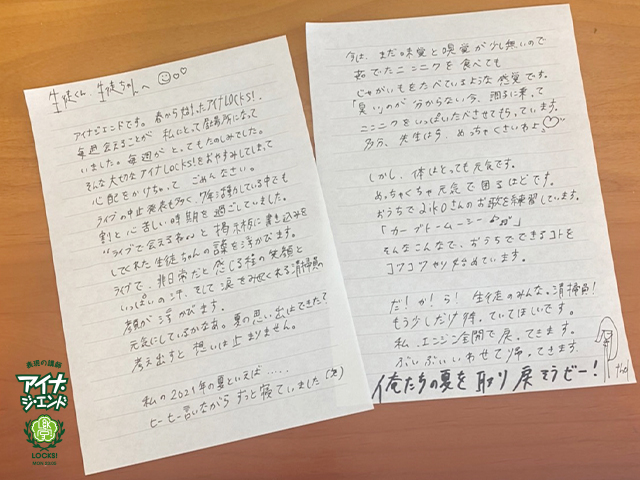 生徒くん 生徒ちゃんへ
アイナジエンドです。春から始まったアイナLOCKS!、
毎週会えることが 私にとって居場所になって
いました。毎週が とってもたのしみでした。
そんな大切なアイナLOCKS!をおやすみしてしまって
心配をかけちゃって ごめんなさい。
ライブの中止発表も多く、7年活動している中でも
割と心苦しい時期を過ごしていました。
"ライブで会えるね"と掲示板に書き込みを
してくれた生徒ちゃんの 顔が浮かびます。
ライブで、非日常だと感じる程の笑顔と
いっぱいの汗、そして涙をみせてくれる清掃員の
顔が 浮かびます。
元気にしているかなあ。夏の思い出はできたて
考え出すと 想いは止まりません。
私の2021年の夏といえば.....
ヒーヒー言いながら ずっと寝ていました(笑)
今は、まだ味覚と嗅覚が少し無いので
茹でたニンニクを食べても
じゃがいもをたべているような感覚です。
「臭い」のが分からない今、図に乗って
ニンニクをいっぱいたべさせてもらっています。
多分、先生は今、めっちゃくさいわよ。
しかし、体はとっても元気です。
めっちゃくちゃ元気で困るほどです。
おうちでaikoさんのお歌を練習しています。
「カブトムシ」
そんなこんなで、おうちでできるコトを
コツコツやり始めています。
だ!か!ら! 生徒のみんな。清掃員!
もう少しだけ待っていてほしいです。
私、エンジン全開で戻ってきます。
ぶいぶいいわせて帰ってきます。
俺たちの夏を取り戻そうぜー!
表現の講師
アイナ・
ジ・エンド
LOCKS!